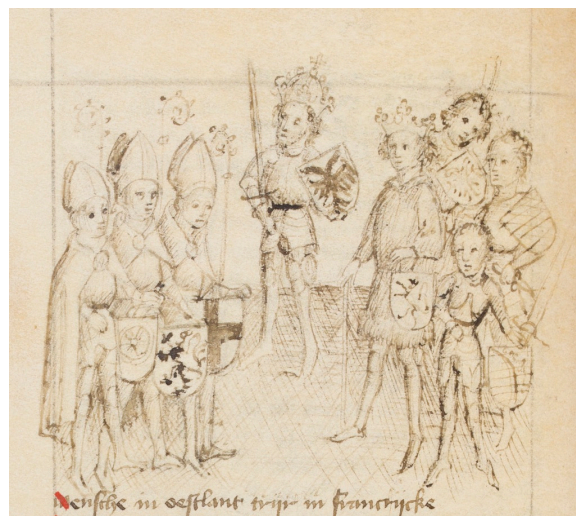 Mensche in oestlant triir in francrijcke